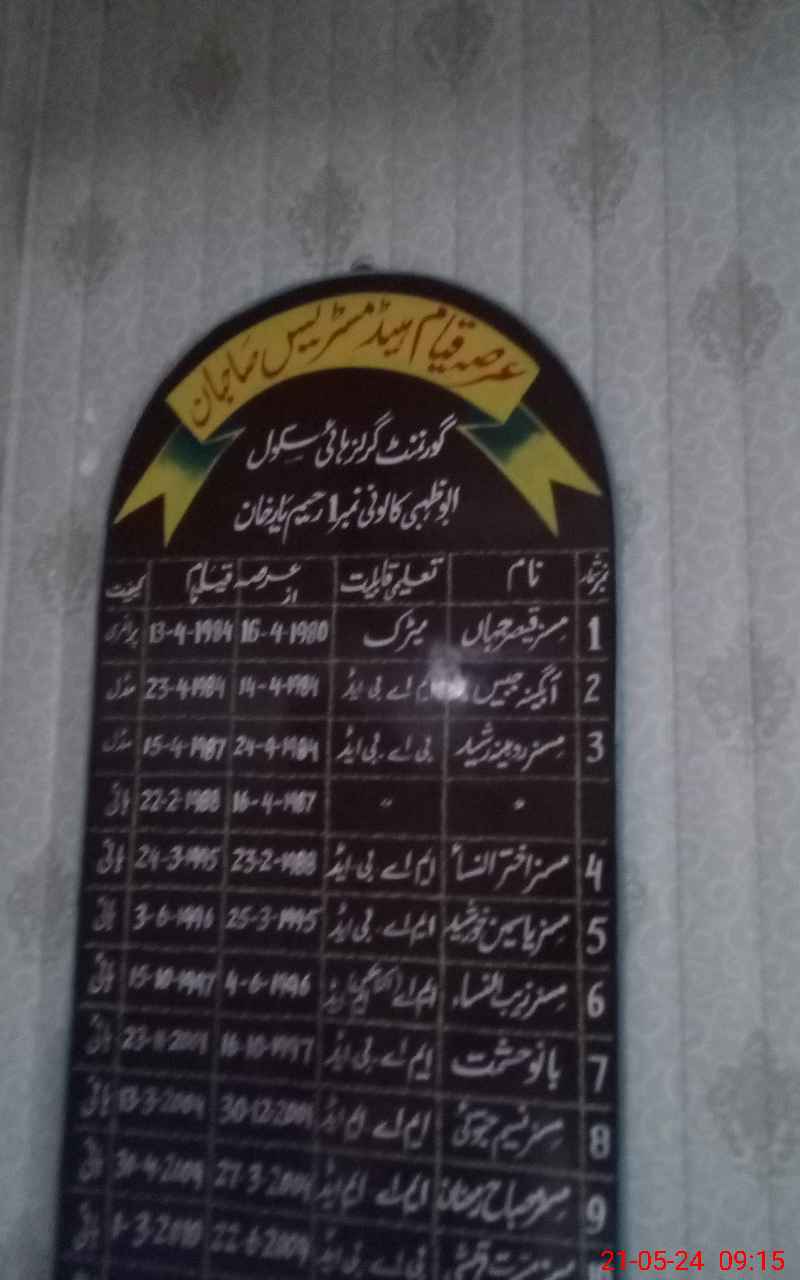 عرصہ قیام ہیڈ مسٹریس صاحبان
گورنمنٹ گرلز ہائی سکول
ابوظہبی کالونی نمبر 1 رحیم یار خان
نمبر شمار نام تعلیمی قابلیت عرصہ قیام از تا کیفیت
1 مسز قیصر جہاں میٹرک 16-4-1980 13-4-1984 پرائمری
2 آبگینہ جبیں ایم اے بی ایڈ 14-4-1984 23-4-1984 مڈل
3 مسز روبینہ رشید بی اے۔بی ایڈ 24-4-1984 15-4-1987 مڈل
〃 〃 16-4-1987 22-2-1988 ہائی
4 مسز اختر النسأ ایم اے بی ایڈ 23-2-1988 24-3-1995 ہائی
5 مسز یاسمین خورشید ایم اے۔بی ایڈ 25-3-1995 3-6-1996 ہائی
6 مسز زیب النساء ایم اے 4-6-1996 15-10-1997 ہائی
7 بانو حشمت ایم اے۔بی ایڈ 16-10-1997 ہائی
8 مسز نسیم ایم اے ایم ایڈ 13-3-2004 ہائی
9 مسز مصباح ایم اے ایم ایڈ 27-3-2004 ہائی
مسز بی اے۔بی ایڈ 1-3-2010 ہائی
21-05-24 09:15